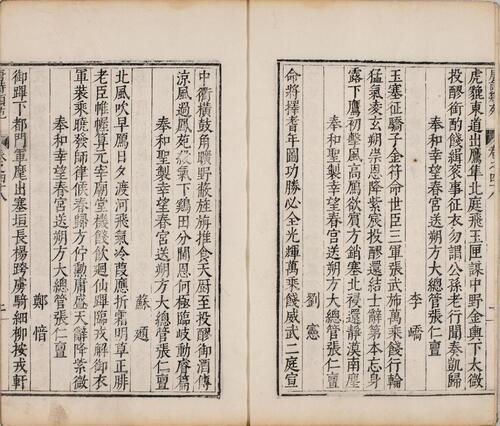 虎貔東道出鷹隼北庭飛玉匣謀中野金輿下太微
投醪銜酌餞緝袞事征衣勿謂公孫老行聞奏凱歸
奉和幸望春宮送朔方大總管張仁亶
李嶠
玉塞征驕子金符命世臣三軍張武旆萬乘餞行輪
猛氣凌玄朔崇恩降紫宸投醪還結士辭第本忘身
露下鷹初擊風高鴈欲賓方銷塞北祲還靜漠南塵
奉和聖製幸望春宮送朔方大總管張仁亶
劉憲
命將擇耆年圖功勝必全光輝萬乘餞威武二庭宣
中衢橫鼓角曠野蔽旌旃推食天厨至投醪御酒傳
涼風過鳳苑殺氣下鷄田分閫恩何極臨岐動睿篇
奉和聖製幸望春宮送朔方大總管張仁亶
蘇頲
北風吹早鴈日夕渡河飛氣冷葭應折霜明草正腓
老臣帷幄算元宰廟堂機餞飲迴仙蹕臨戎解御衣
軍裝乘曉發師律候春歸方佇勳庸盛天辭降紫微
奉和幸望春宮送朔方大總管張仁亶
鄭愔
御蹕下都門軍麾出塞垣長楊跨虜騎細柳按戎軒